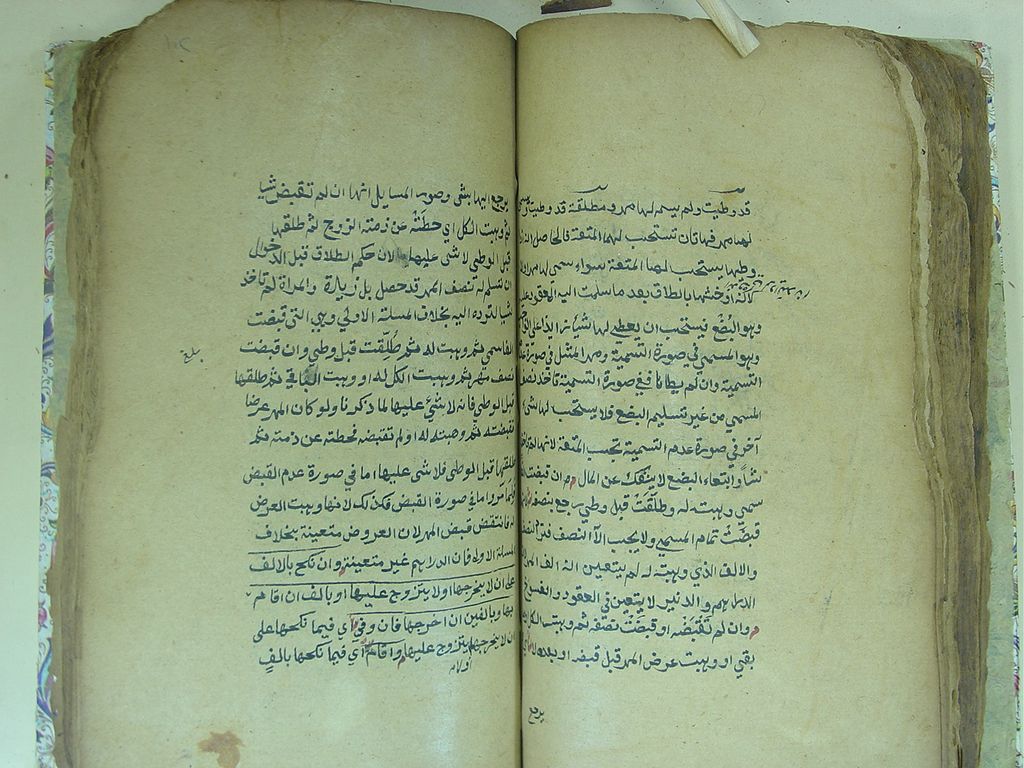 قد وطيت ولم يسم لها مهر ومطلقة قد وطيت
لها مهر فهاتان تستحب لهما المتعة فالحاصل
وطيها يستحب لها المتعة سواء سمى لها مهر او
لانه اوحشها بالطلاق بعد ما سلمت اليه المعقود عليه
وهو البضع فيستحب ان يعطي لها شيأ زايدا على
وهو المسمى في صورة التسمية ومهر المثل في صورة عدم
التسمية وان لم يطاها ففي صورة التسمية تاخذ نصف
المسمى من غير تسليم البضع فلا يستحب لها شي
آخر في صورة عدم التسمية تجب المتعة لانها
شيأ وابتغاء البضع لا ينفك عن المال وان قبضت
سمى ووهبته له وطلقت قبل وطي رجع بنصفه
قبضت تمام المسمى ولا يجب الا النصف
والالف الذي وهبته له لم يتعين انه الف المهر
الدراهم والدنير لا يتعين في العقود والفسوخ
وان لم تقبضه او قبضت نصفه ثم وهبت الكل او
بقي او وهبت عرض المهر قبل قبضه او بعده لا
يرجع
يرجع اليها بشي وصورة المسايل انها ان لم تقبض شيا
ثم وهبت الكل اي حطته عن ذمته الزوج ثم طلقها
قبل الوطي لا شي عليها لان حكم الطلاق قبل الدخول
ان تسلم له نصف المهر قد حصل بل زيادة والمراة لم تاخذ
شيا لترده اليه بخلاف المسلة الاولى وهي التي قبضت
الفا سمى ثم وهبت له ثم طلقت قبل وطي وان قبضت
نصف المهر ثم وهبت الكل له او وهبت الباقي ثم طلقها
قبل الوطي فانه لا شيء عليها لما ذكرنا ولو كان المهر عرضا
فقبضته ثم وهبته له او لم تقبضه فحطته عن ذمته ثم
طلقها قبل الوطي فلا شي عليها اما في صورة عدم القبض
فلما مر واما في صورة القبض فكذلك لانها وهبت العرض
له فانتقض قبض المهر لان العروض متعينة بخلاف
المسلة الاولى فان الدراهم غير متعينة وان نكح بالالف
على ان لا يخرجها او لا يتزوج عليها او بالف ان اقام
بها وبالفين ان اخرجها فان وفى اي فيما نكحها على
ان لا يخرجها يتزوج عليها واقام اي فيما نكحها بالف
او لا